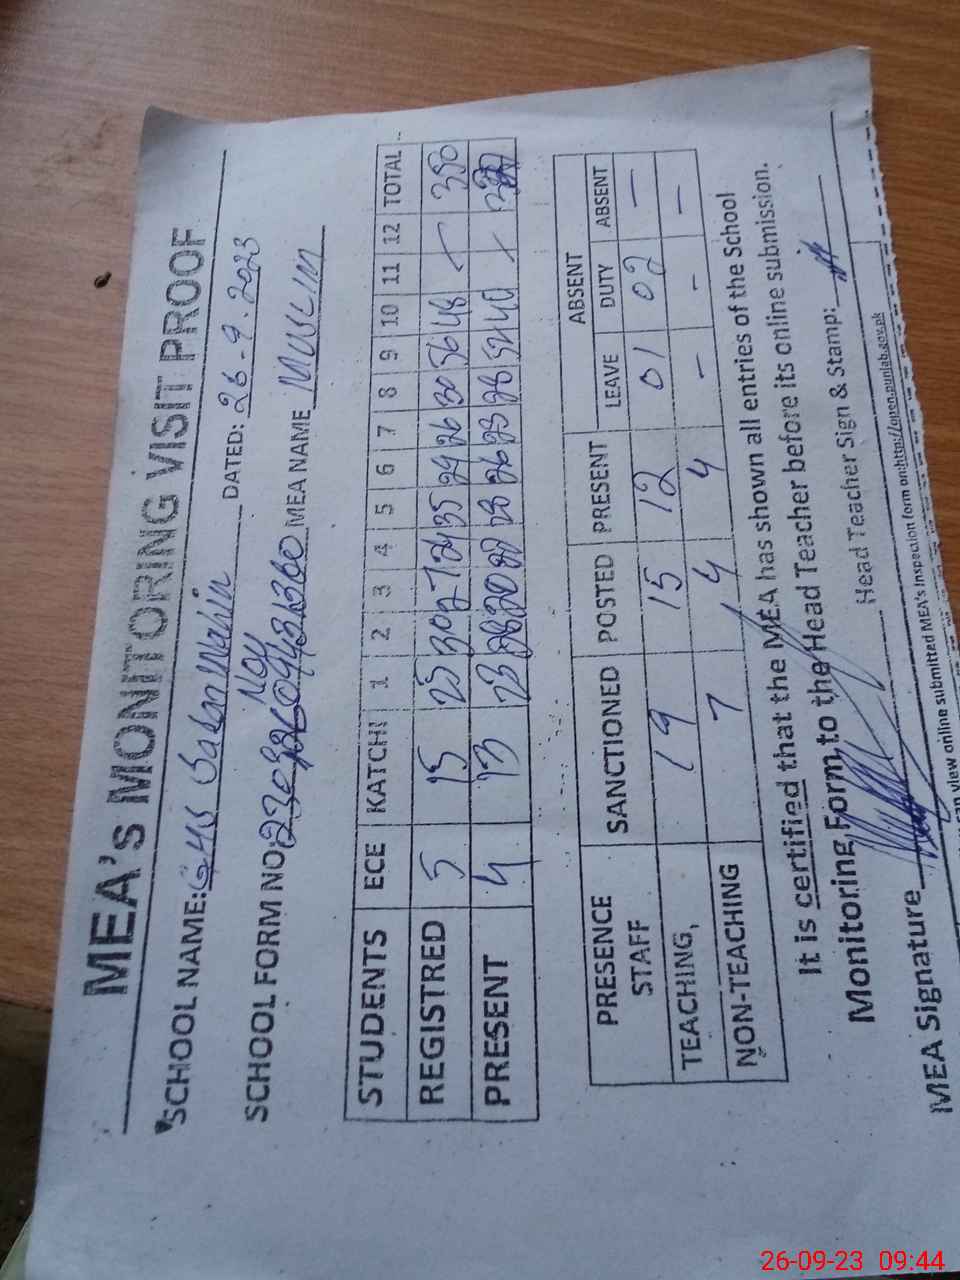 MEA's MONITORING VISIT PROOF
SCHOOL NAME: GHS DATED: 26-9-2023
SCHOOL FORM NO. MEA NAME MUSLIM
STUDENTS ECE KATCHI 1 2 3 4 5 6 7 8 9 10 11 12 TOTAL
REGISTRED 5 15 25 30 27 35 29 26 30 56 48 350
PRESENT 4 13 23 28 20 28 26 23 28 52 40
PRESENCE STAFF SANCTIONED POSTED PRESENT ABSENT
LEAVE DUTY ABSENT
TEACHING, 19 15 12 01 02 —
NON-TEACHING 7 4 4 - - -
It is certified that the MEA has shown all entries of the School
Monitoring Form to the Head Teacher before its online submission.
MEA Signature Head Teacher Sign & Stamp:
can view online submitted MEA's Inspection form on:http://open.punjab.gov.pk
26-09-23 09:44